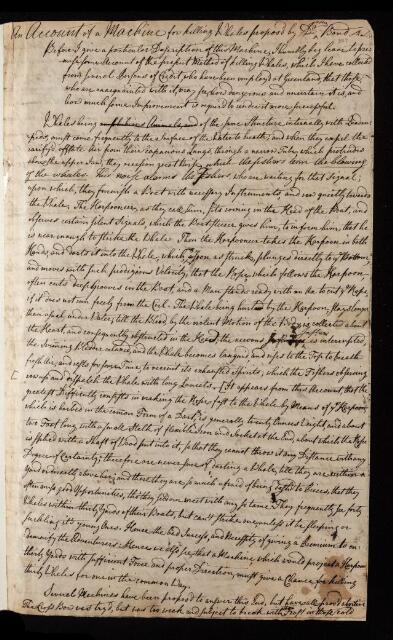 An Account of a Machine for killing Whales proposed by Dr Bond &c.
Before I give a particular Description of this Machine, I humbly beg leave to pre-
mise some Account of the present Method of killing Whales, which I have collected
from several Persons of Credit who have been employed at Greenland, that those,
who are unacquainted with it, may see how dangerous and uncertain it is, and
how much some Improvement is required to render it more successful.
Whales being of the same Structure internally with Land
must come frequently to the Surface of the Water to breath; and when they expel the
rarify'd effete Air from their capacious Lungs through a narrow Tube, which
above the upper Jaw, they occasion great which the fishers term the blowing
of the whales. This noise alarms the fishers, who are waiting for that Signal;
upon which, they furnish a Boat with necessary Instruments, and row quietly towards
the Whale. The Harpooneer, as they call him, sits rowing in the Head of the Boat, and
observes certain silent Signals, which the Boat Steerer gives him, to inform him, that he
is near enough to strike the Whale. Then the Harpooneer takes the Harpoon in both
Hands, and darts it into the Whale, which as soon as struck, plunges directly to the Bottom,
and moves with such prodigious Velocity, that the Rope, which follows the Harpoon,
often cuts deep Grooves in the Boat, and a Man stands ready with an Ax to cut the Rope,
if it does not run freely from the Coil. The Whale being by the Harpoon, stays longer
than usual under Water, till the Blood by the violent Motion of the Body is collected about
the Heart, and consequently obstructed in the Head, the is interrupted,
the Swimming Bladder and the Whale becomes languid, and rises to the Top to breathe
fresh Air, and rests for some Time, to recruit its exhausted Spirits, which the Fishers observing
row up and dispatch the Whale with long Launcets. [It appears from this Account that the
greatest Difficulty consists in making the Rope fast to the Whale by Means of the Harpoon,
which is barbed in the common Form of a Dart, is generally twenty Ounces Weight, and about
two Foot long, with a small Shaft of and Socket at the End, about which the Rope
is spliced with a Shaft of Wood put into it, so that they cannot throw it any Distance with any
Degree of Certainty; therefore are never sure of darting a Whale, till they are within a
Yard or directly above him; and there they are so much afraid of being to Pieces, that they
often miss good Opportunities, that they seldom meet with any so tame. They frequently see forty
Whales within thirty Yards of their Boats, but can't strike one unless it be sleeping or
suckling its young Ones. Hence the bad Success, and Necessity of giving a Premium to in-
demnify the Adventurers. Hence we also see, that a Machine, which would project a Harpoon
thirty Yards with sufficient Force and proper Direction, must give a Chance for killing
thirty Whales for one in the common Way.
Several Machines have been proposed to answer this End, but have all proved abortive
The Cross Bow was try'd, but was too weak and subject to break with Frost in those cold